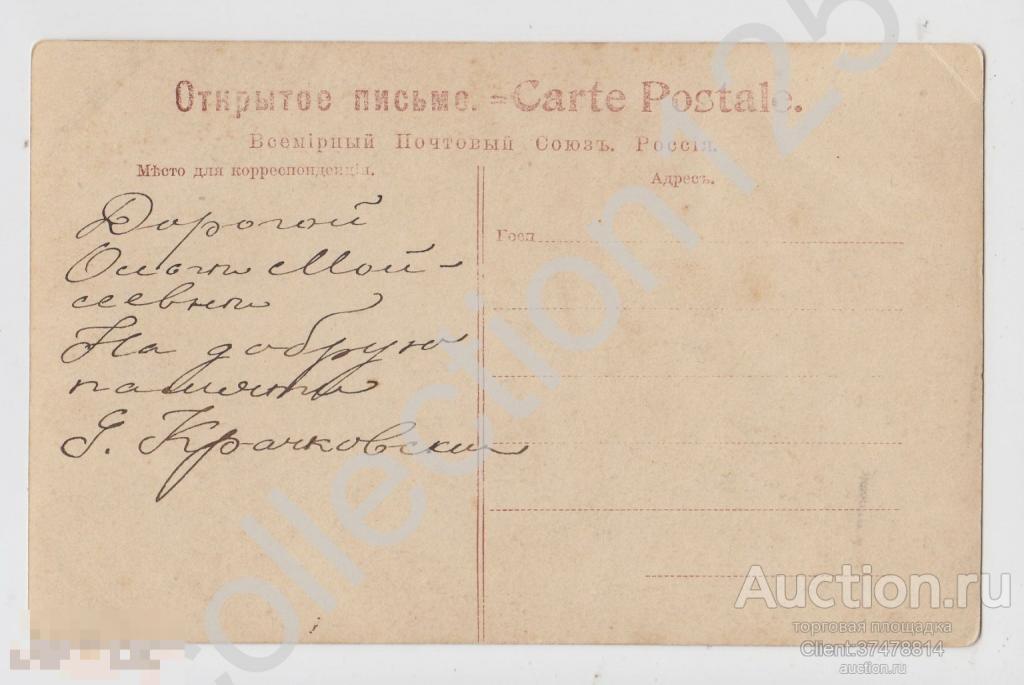 Открытое письмо. = Carte Postale.
Всемірный Почтовый Союзъ. Россія.
Мѣсто для корреспонденціи.
Адресъ.
Дорогой
Мой-
сеевны
На добрую
памяти
Крачковски
Госп.
collection 125
Auction.ru
торговая площадка
Client:37478814
auction.ru